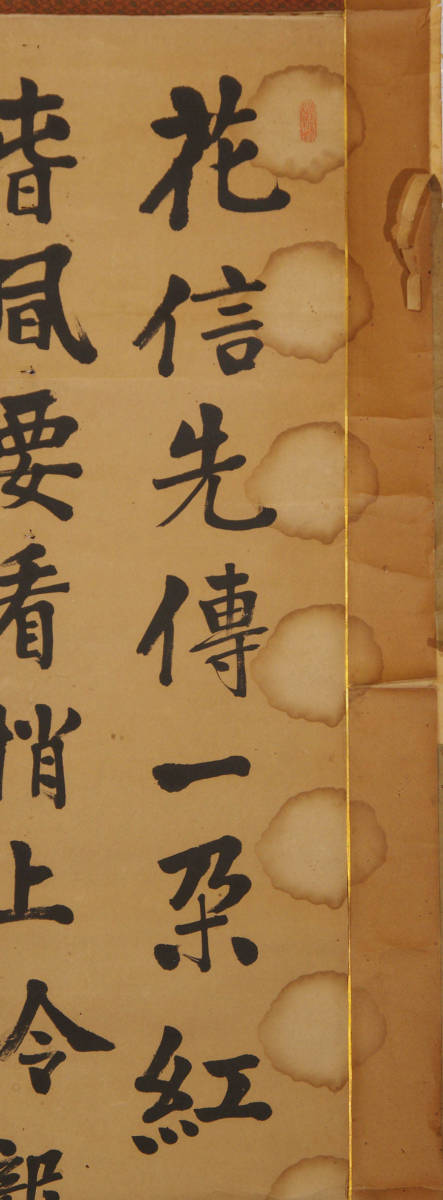 花信先傳一朶紅
春風要看上令